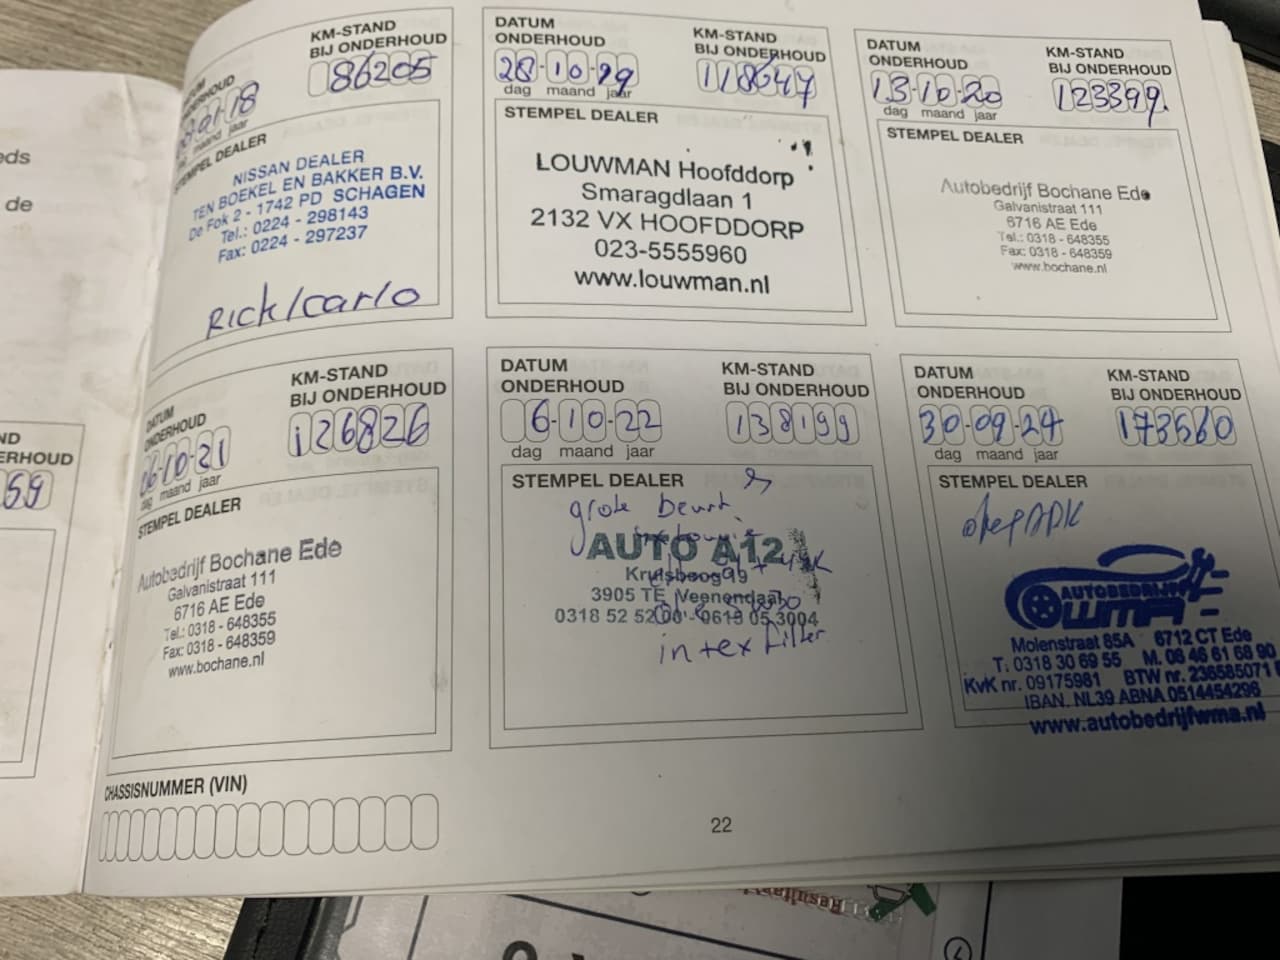 eds
de
ND
ERHOUD
59
DATUM
ONDERHOUD
01-18
jaar
maand
KM-STAND
BIJ ONDERHOUD
86205
STEMPEL DEALER
NISSAN DEALER
TEN BOEKEL EN BAKKER B.V.
De Fok 2 - 1742 PD SCHAGEN
Tel.: 0224 - 298143
Fax: 0224 - 297237
Rick/carlo
DATUM
ONDERHOUD
28-10-19
dag maand jaar
KM-STAND
BIJ ONDERHOUD
118647
STEMPEL DEALER
LOUWMAN Hoofddorp
Smaragdlaan 1
2132 VX HOOFDDORP
023-5555960
www.louwman.nl
DATUM
ONDERHOUD
13-10-20
dag maand jaar
KM-STAND
BIJ ONDERHOUD
123399.
STEMPEL DEALER
Autobedrijf Bochane Ede
Galvanistraat 111
6716 AE Ede
Tel.: 0318 - 648355
Fax: 0318 - 648359
www.bochane.nl
DATUM
ONDERHOUD
06-10-21
dag maand jaar
KM-STAND
BIJ ONDERHOUD
126826
STEMPEL DEALER
Autobedrijf Bochane Ede
Galvanistraat 111
6716 AE Ede
Tel.: 0318 - 648355
Fax: 0318 - 648359
www.bochane.nl
DATUM
ONDERHOUD
6-10-22
dag maand jaar
KM-STAND
BIJ ONDERHOUD
138199
STEMPEL DEALER
grote beurt
AUTO A12
Kruisboog 19
3905 TE Veenendaal
0318 52 52 00 - 0619 05 3004
intex filter
DATUM
ONDERHOUD
30-09-24
dag maand jaar
KM-STAND
BIJ ONDERHOUD
173560
STEMPEL DEALER
APK
AUTOBEDRIJF
WMA
Molenstraat 85A 6712 CT Ede
T. 0318 30 69 55 M. 06 46 61 68 90
KvK nr. 09175981 BTW nr. 236585071
IBAN. NL39 ABNA 0514454296
www.autobedrijfwma.nl
CHASSISNUMMER (VIN)
22